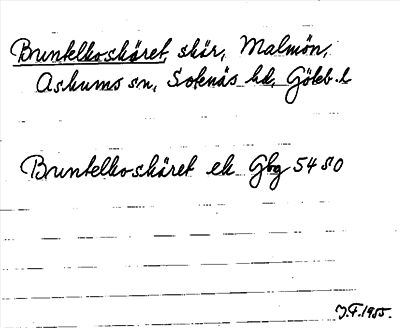 Buntelhoskäret, skär, Malmön,
Askums sn, Sotenäs hd, Göteb. l
Buntelhoskäret ek Gbg 54 SO
J.F. 1955.